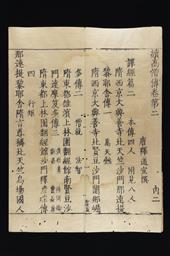 續高僧傳卷第二 內二
唐釋道宣撰
譯經篇二 本傳四人 附見八人
隋西京大興善寺北天竺沙門那連
黎耶舍傳一 萬天懿
隋西京大興善寺北賢豆沙門闍那崛
多傳二 僧就 法智
隋東都雒濱上林園翻經館南賢豆沙
門達摩笈多傳三
隋東都上林園翻經館沙門釋彥琮傳
四 行矩
那連提黎耶舍隋言尊稱北天竺烏場國人